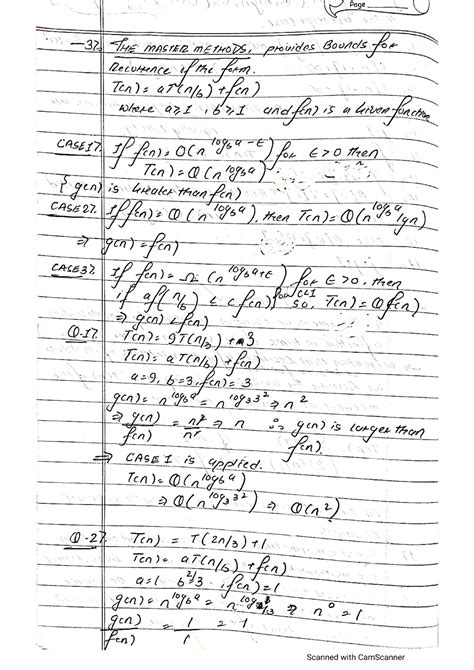 Page
37. THE MASTER METHODS, provides Bounds for
Recurrence of the form.
T(n) = aT(n/b) + f(n)
where a≥1, b≥1 and f(n) is a Given function
CASE 17. If f(n) = O(n^(log_b a - ε)) for ε>0 then
T(n) = Θ(n^(log_b a))
{ g(n) is Greater than f(n)
CASE 27. If f(n) = Θ(n^(log_b a)), then T(n) = Θ(n^(log_b a) lg n)
⇒ g(n) = f(n)
CASE 37. If f(n) = Ω(n^(log_b a + ε)) for ε>0, then
if af(n/b) ≤ cf(n)} for c<1 so, T(n) = Θf(n)
⇒ g(n) < f(n)
Q.17. T(n) = 9T(n/3) + 3
T(n) = aT(n/b) + f(n)
a=9, b=3, f(n) = 3
g(n) = n^(log_b a) = n^(log_3 3^2) ⇒ n^2
⇒ g(n)/f(n) = n^2/n ⇒ n ∴ g(n) is larger than
f(n).
⇒ CASE I is applied.
T(n) = Θ(n^(log_b a))
⇒ Θ(n^(log_3 3^2)) ⇒ Θ(n^2)
Q.27. T(n) = T(2n/3) + 1
T(n) = aT(n/b) + f(n)
a=1 , f(n) = 1
g(n) = n^(log_b a) = ⇒ n^0 = 1
g(n)/f(n) = 1/1 = 1
Scanned with CamScanner